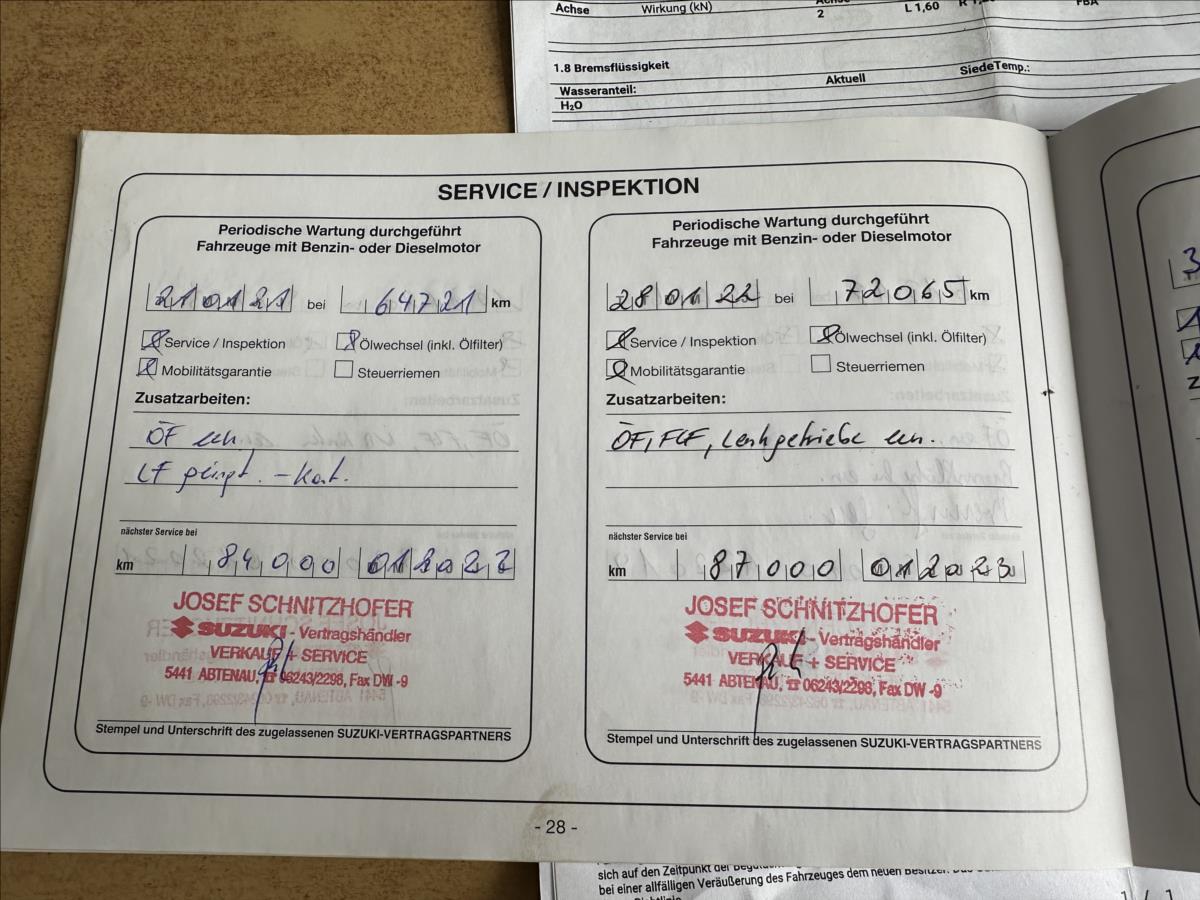 Achse Wirkung (kN) 2 L 1,60
1.8 Bremsflüssigkeit
Wasseranteil: Aktuell SiedeTemp.:
H₂O
SERVICE / INSPEKTION
Periodische Wartung durchgeführt
Fahrzeuge mit Benzin- oder Dieselmotor
210121 bei 64721 km
Service / Inspektion Ölwechsel (inkl. Ölfilter)
Mobilitätsgarantie Steuerriemen
Zusatzarbeiten:
ÖF ern.
LF gereinigt. - Kont.
nächster Service bei
km 84000 012022
JOSEF SCHNITZHOFER
SUZUKI - Vertragshändler
VERKAUF + SERVICE
5441 ABTENAU, ☎ 06243/2298, Fax DW -9
Stempel und Unterschrift des zugelassenen SUZUKI-VERTRAGSPARTNERS
Periodische Wartung durchgeführt
Fahrzeuge mit Benzin- oder Dieselmotor
280122 bei 72065 km
Service / Inspektion Ölwechsel (inkl. Ölfilter)
Mobilitätsgarantie Steuerriemen
Zusatzarbeiten:
ÖF, FLF, Lenkgetriebe ern.
nächster Service bei
km 87000 012023
JOSEF SCHNITZHOFER
SUZUKI - Vertragshändler
VERKAUF + SERVICE
5441 ABTENAU, ☎ 06243/2298, Fax DW -9
Stempel und Unterschrift des zugelassenen SUZUKI-VERTRAGSPARTNERS
- 28 -
sich auf den Zeitpunkt der
bei einer allfälligen Veräußerung des Fahrzeuges dem neuen Besitzer.
1 / 1